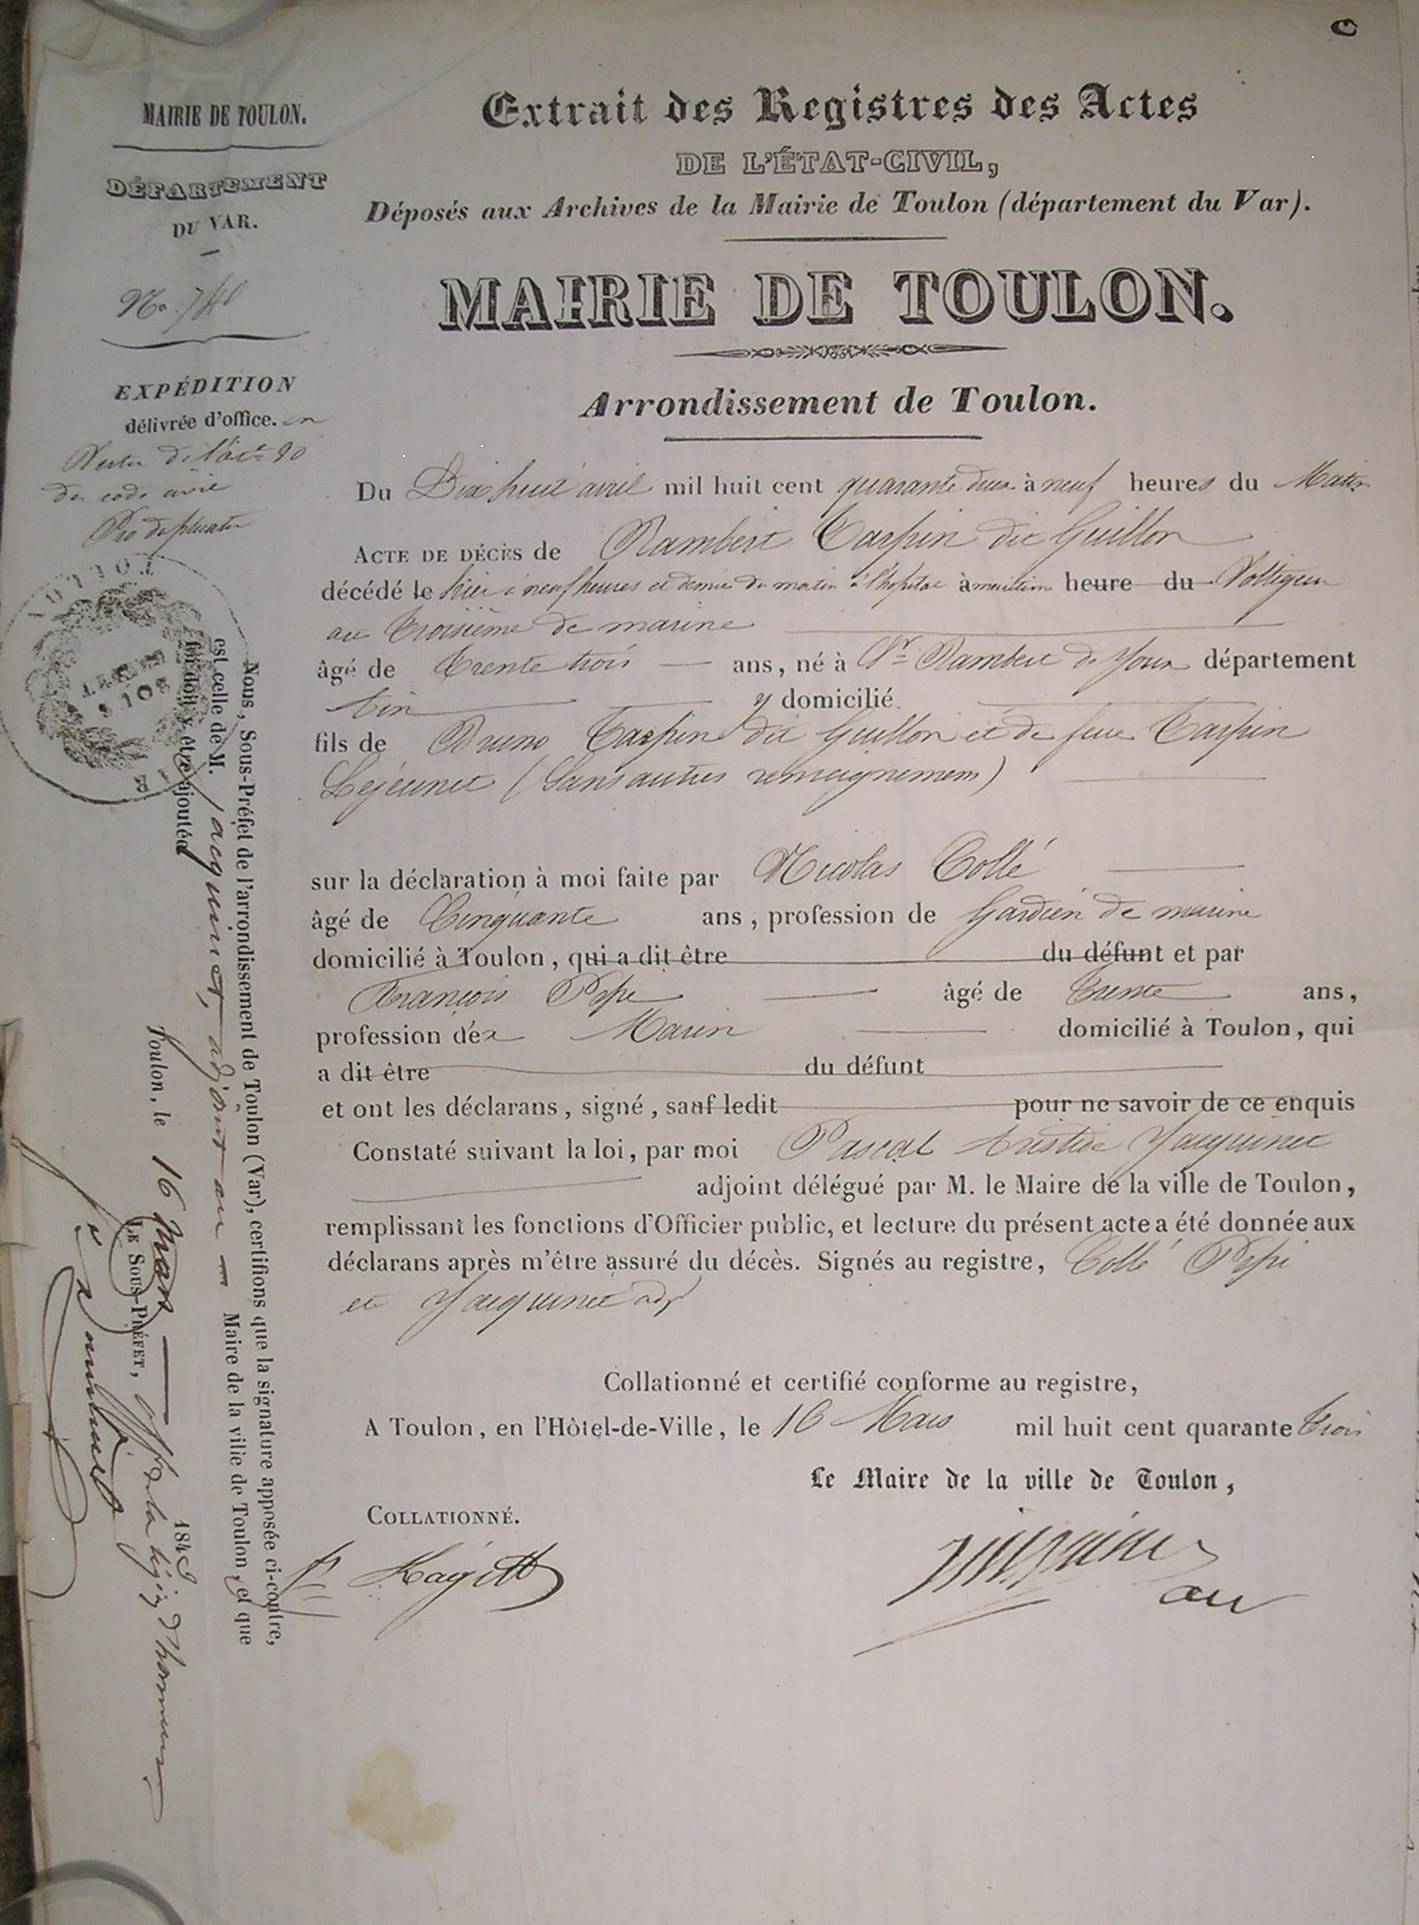 MAIRIE DE TOULON.
DÉPARTEMENT
DU VAR.
No. 740
EXPÉDITION
délivrée d'office. en
Vertu de l'art. 80
du code civil
Extrait des Registres des Actes
DE L'ÉTAT-CIVIL,
Déposés aux Archives de la Mairie de Toulon (département du Var).
MAIRIE DE TOULON.
Arrondissement de Toulon.
Du Dix huit avril mil huit cent quarante deux à neuf heures du Matin
ACTE DE DÉCÈS de Rambert Tarpin dit Guillon
décédé le hier à neuf heures et demie du matin à l'hopital à maritime heure du Voltigeur
au troisième de marine
âgé de trente trois ans, né à St Rambert de Joux département
l'ain y domicilié.
fils de Bruno Tarpin dit Guillon et de feue Tarpin
Lejeunet (Sans autres renseignemens)
sur la déclaration à moi faite par Nicolas Collé
âgé de Cinquante ans, profession de Gardien de marine
domicilié à Toulon, qui a dit être du défunt et par
François Pepi âgé de trente ans,
profession de Marin domicilié à Toulon, qui
a dit être du défunt
et ont les déclarans, signé, sauf ledit pour ne savoir de ce enquis
Constaté suivant la loi, par moi Pascal Aristide Jacquinet
adjoint délégué par M. le Maire de la ville de Toulon,
remplissant les fonctions d'Officier public, et lecture du présent acte a été donnée aux
déclarans après m'être assuré du décès. Signés au registre, Collé Pepi
et Jacquinet adj
Collationné et certifié conforme au registre,
A Toulon, en l'Hôtel-de-Ville, le 16 Mars mil huit cent quarante trois
Le Maire de la ville de Toulon,
COLLATIONNÉ.
Nous, Sous-Préfet de l'arrondissement de Toulon (Var), certifions que la signature apposée ci-contre,
est celle de M. Jacquinet, adjoint au Maire de la ville de Toulon, et que
foi doit y être ajoutée
Toulon, le 16 Mars 1843
LE SOUS-PRÉFET, off. de la légion d'honneur
TOULON